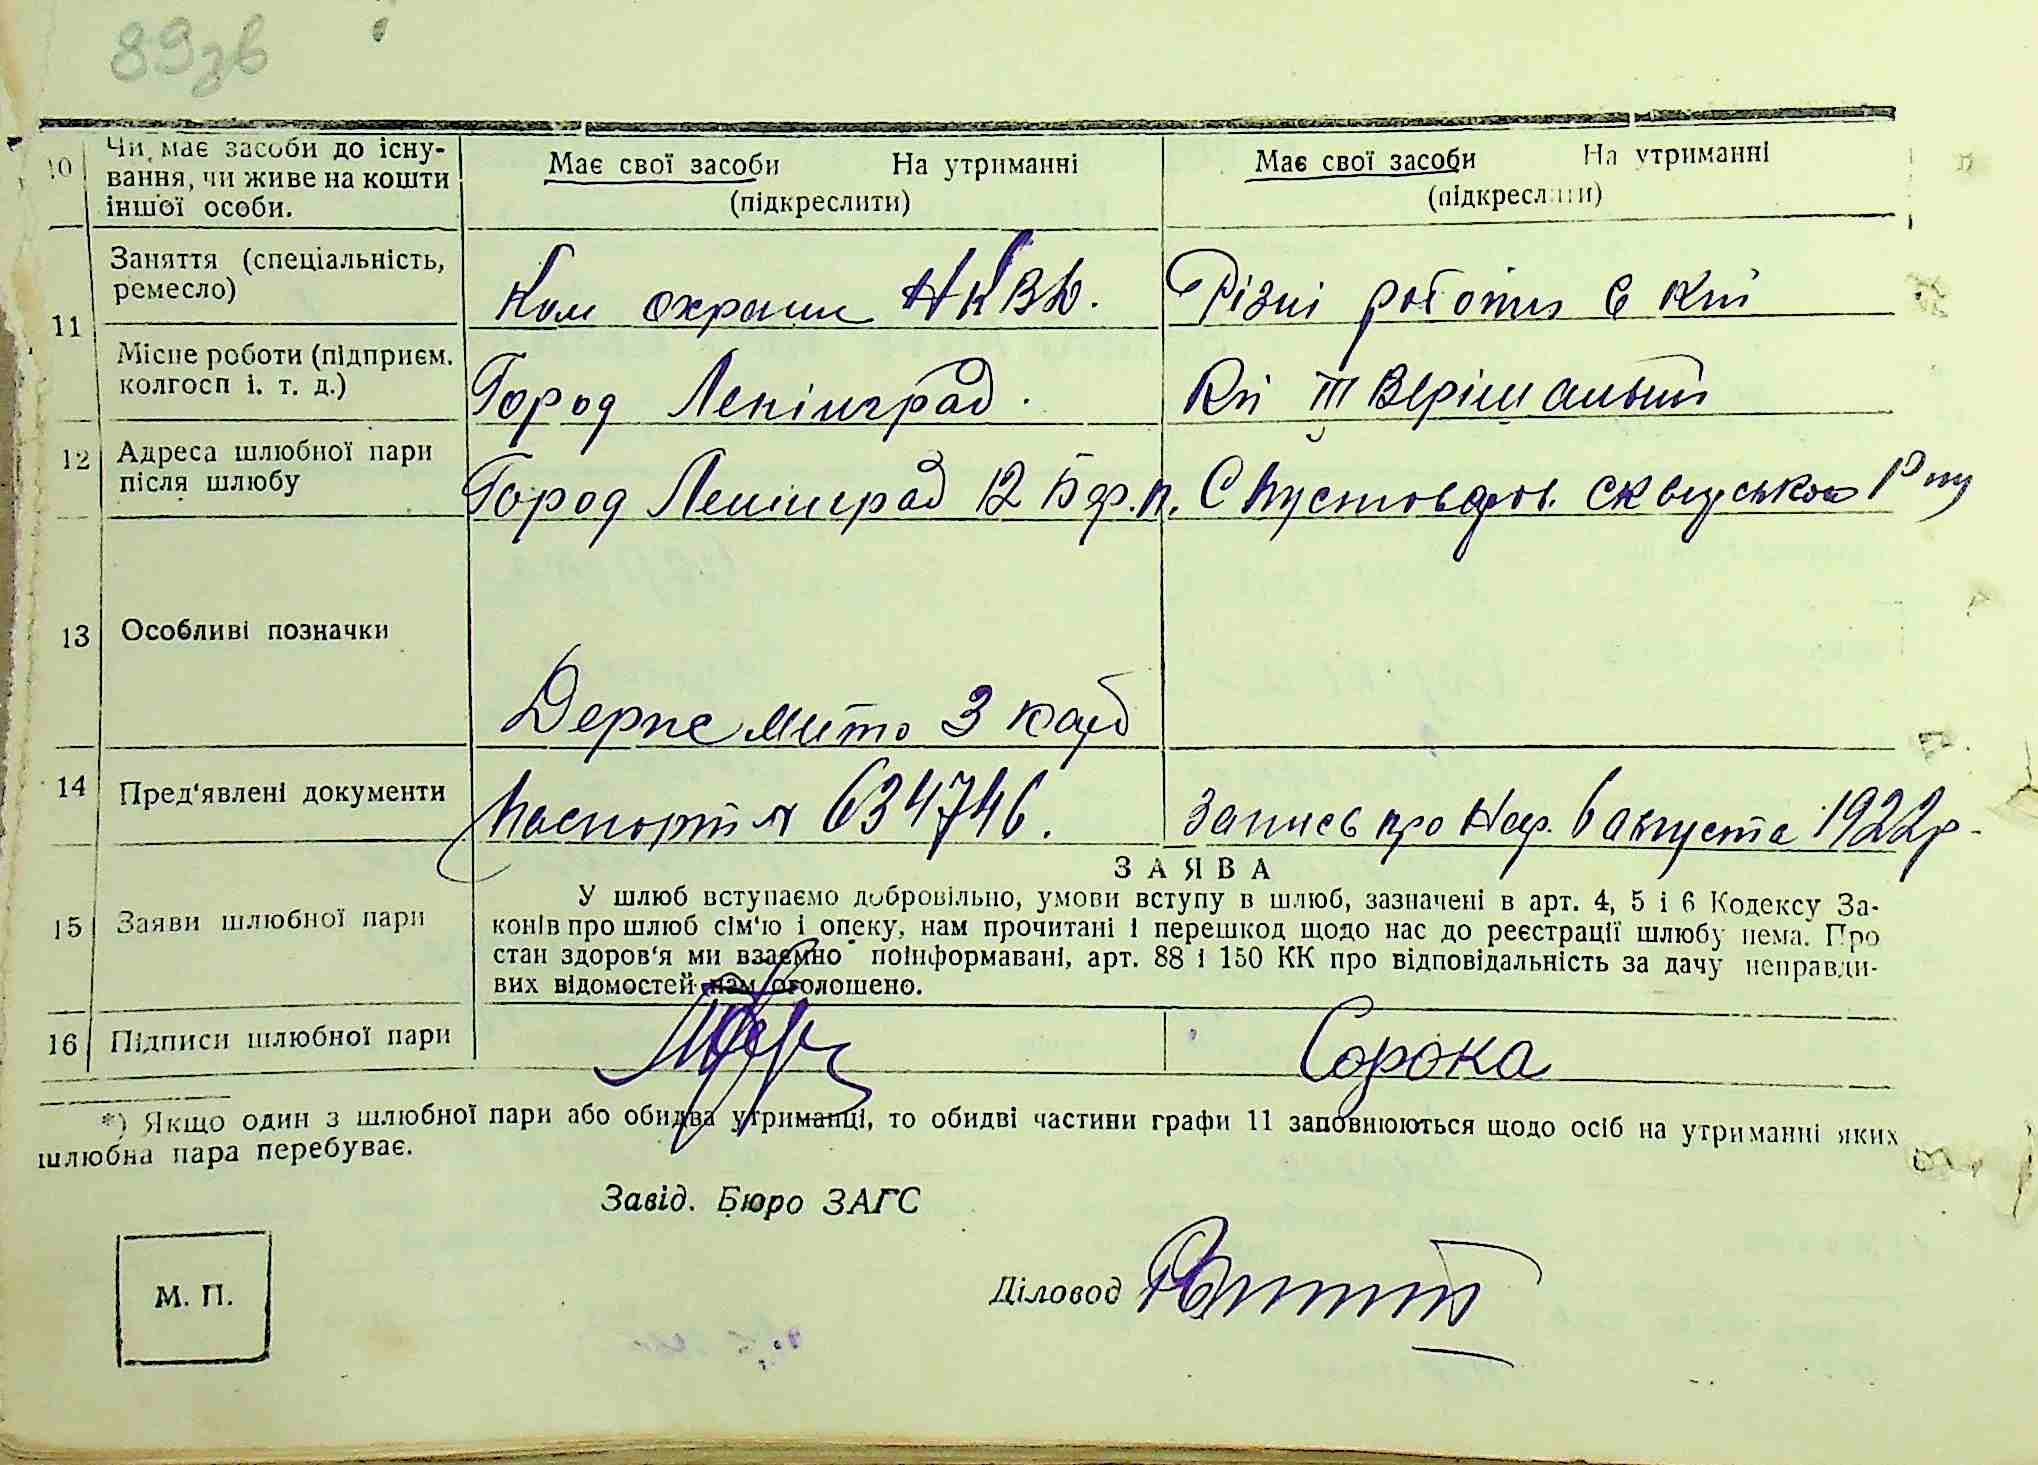 89зв
10 Чи має засоби до існу-
вання, чи живе на кошти
іншої особи.
Має свої засоби На утриманні
(підкреслити)
Має свої засоби На утриманні
(підкреслити)
11 Заняття (спеціальність,
ремесло)
Ком охрани НКВД.
Різні роботи в кгп
Місце роботи (підприєм.
колгосп і. т. д.)
Город Ленінград.
Кгп ІІІ Вирішальний
12 Адреса шлюбної пари
після шлюбу
Город Ленінград 12
С Пустовар Сквирського Р ну
13 Особливі позначки
Держ мито 3 карб
14 Пред'явлені документи
Паспорт № 634746.
Запись про Нар. 6 августа 1922р
ЗАЯВА
15 Заяви шлюбної пари
У шлюб вступаємо добровільно, умови вступу в шлюб, зазначені в арт. 4, 5 і 6 Кодексу За-
конів про шлюб сім'ю і опеку, нам прочитані і перешкод щодо нас до реєстрації шлюбу нема. Про
стан здоров'я ми взаємно поінформавані, арт. 88 і 150 КК про відповідальність за дачу неправди-
вих відомостей нам оголошено.
16 Підписи шлюбної пари
Сорока
*) Якщо один з шлюбної пари або обидва утриманці, то обидві частини графи 11 заповнюються щодо осіб на утриманні яких
шлюбна пара перебуває.
Завід. Бюро ЗАГС
М. П.
Діловод